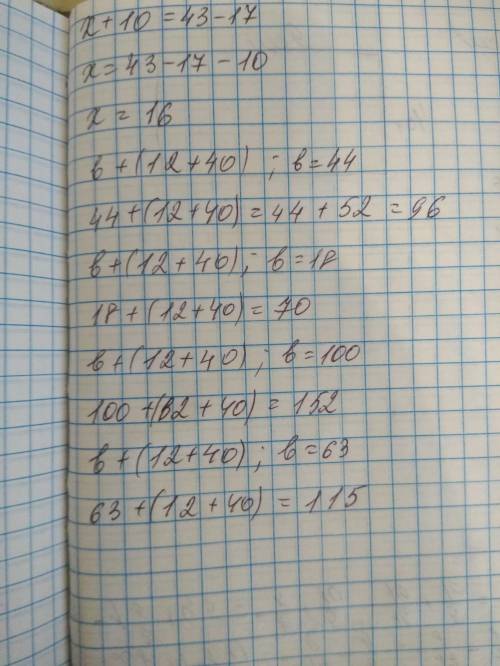 x + 10 = 43 - 17
x = 43 - 17 - 10
x = 16
в + (12 + 40) ; в = 44
44 + (12 + 40) = 44 + 52 = 96
в + (12 + 40) ; в = 18
18 + (12 + 40) = 70
в + (12 + 40) ; в = 100
100 + (12 + 40) = 152
в + (12 + 40) ; в = 63
63 + (12 + 40) = 115